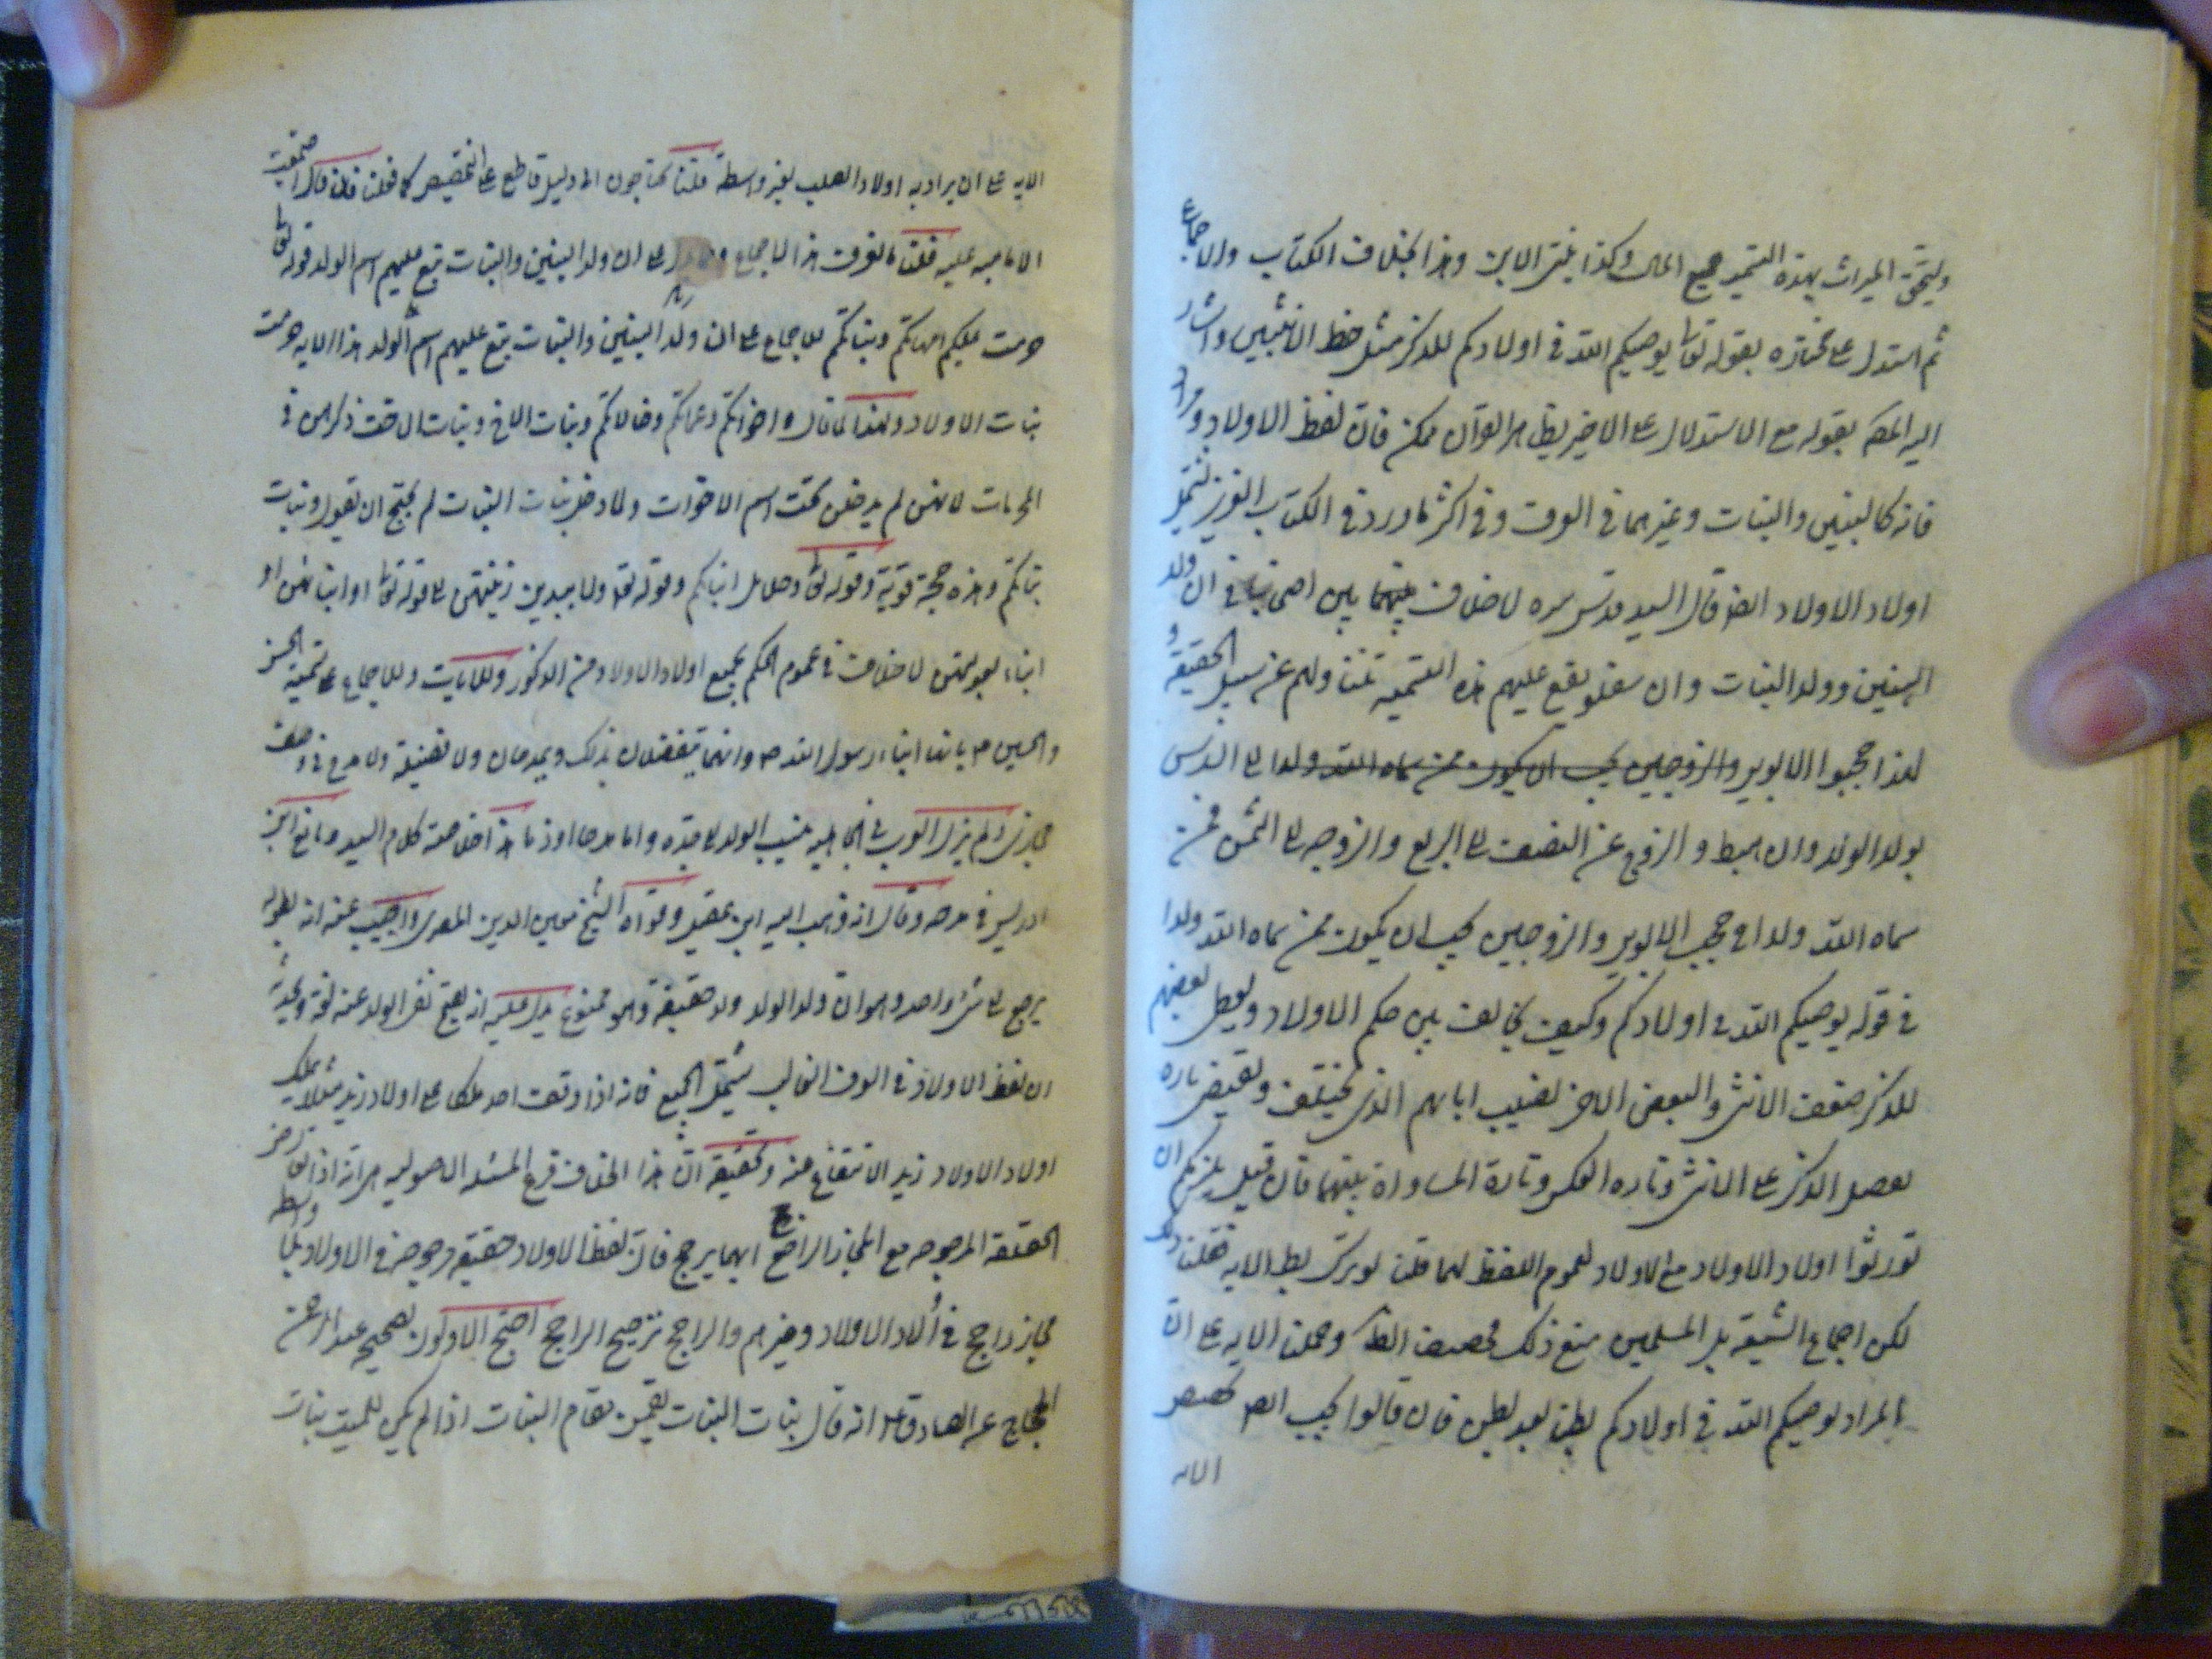 وليتحق الميراث بهذه التسمية جميع المال وكذا بنتى الابن وهذا بخلاف الكتاب والاجماع
ثم استدل على مختاره بقوله تعا يوصيكم الله فى اولادكم للذكر مثل حظ الانثيين واشار
اليه المصـ بقوله مع الاستدلال على الاخير بظاهر القران ممكن فان لفظ الاولاد ومراد
فانه كالبنين والبنات وغيرهما فى العرف وفى اكثر ما ورد فى الكتاب العزيز يشمل
اولاد الاولاد ايضا قال السيد قدس سره لا خلاف بين اصحابنا فى ان ولد
البنين وولد البنات وان سفلو يقع عليهم هذه التسمية تتناولهم عن سبيل الحقيقة و
لهذا حجبوا الابوين والزوجين يجب ان يكون من سماه الله ولدا الى السدس
بولد الولد وان هبط والزوج عن النصف الى الربع والزوجه الى الثمن فمن
سماه الله ولدا فى حجب الابوين والزوجين يجب ان يكون من سماه الله ولدا
فى قوله يوصيكم الله فى اولادكم وكيف يخالف بين حكم الاولاد ويعطى بعضهم
للذكر ضعف الانثى والبعض الاخر نصيب ابائهم الذى يختلف ويقتضى تارة
تفضيل الذكر على الانثى وتارة العكس وتارة المساواة بينهما فان قيل يلزمكم ان
تورثوا اولاد الاولاد مع الاولاد لعموم اللفظ لهما قلنا لو تركنا بظ الايه لقلنا ذلك
لكن اجماع الشيعة بل المسلمين منع ذلك فخصصنا الظ وحملنا الايه على ان
المراد يوصيكم الله فى اولادكم بطنا بعد بطن فان قالوا يجب ايضا تخصيص
الايه
الايه على ان يراد به اولاد الصلب بغير واسطة قلنا تحتاجون الى دليل قاطع على التخصيص كما فعلنا فان قالوا اجمعت
الامامية عليه قلنا ما نعرف هذا الاجماع على ان ولد البنين والبنات يقع عليهم اسم الولد قوله تعا
حرمت عليكم امهاتكم وبناتكم للاجماع على ان ولد البنين والبنات يقع عليهم اسم الولد هذا الايه حرمت
بنات الاولاد ولهذا لما قال واخواتكم وعماتكم وخالاتكم وبنات الاخ وبنات الاخت ذكرهن فى
المحرمات لانهن لم يدخلن تحت اسم الاخوات ولما دخل بنات البنات لم يحتج ان يقول وبنات
بناتكم وهذه حجة قوية وقوله تعا وحلائل ابنائكم وقوله تعا ولا يبدين زينتهن الى قوله تعا او ابنائهن او
ابناء بعولتهن لا خلاف فى عموم الحكم بجميع اولاد الاولاد من الذكور والاناث وللاجماع على تسمية الحسن
والحسين ع بانهما ابناء رسول الله ص وانهما يتفضلان بذلك ويمدحان ولا فضيلة ولا مدح فى وصف
مجازى ولم يزل العرب فى الجاهليه ينسب الولد الى جده واما مدحا او ذما هذا خلاصة كلام السيد وتابع ابن
ادريس فى مدحه وقال انه ذهب اليه ابن عقيل وقواه الشيخ معين الدين المصرى واجيب عنه انه بطوله
يرجع الى شئ واحد وهو ان ولد الولد ولد حقيقة وهو ممنوع يدل عليه انه يصح نفى الولد عنه لغة وتحقيقه
ان لفظ الاولاد فى العرف الغالب يشمل الجميع فانه اذا وقف احد ملكا على اولاد زيد مثلا يملك
اولاد الاولاد زيد الانتفاع منه وتحقيقه ان هذا الخلاف فرع المسئله الاصوليه هى انه اذا تعارض
الحقيقة المرجوحه مع المجاز الراجح ايهما يرجح فان لفظ الاولاد حقيقة مرجوحة فى الاولاد بلا واسطه
مجاز راجح فى اولاد الاولاد وغيرهم والراجح ترجيح الراجح احتج الاولون بصحيح عبد الرحمن
الحجاج عن الصادق ع انه قال بنات البنات يقمن مقام البنات اذا لم يكن للميت بنات